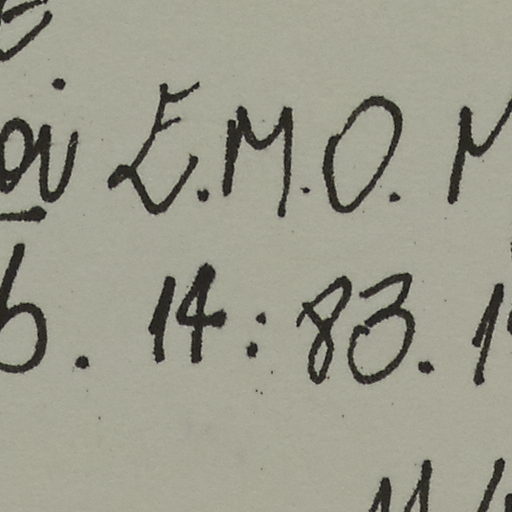 oi E.M.O. M
6. 14:83. 1